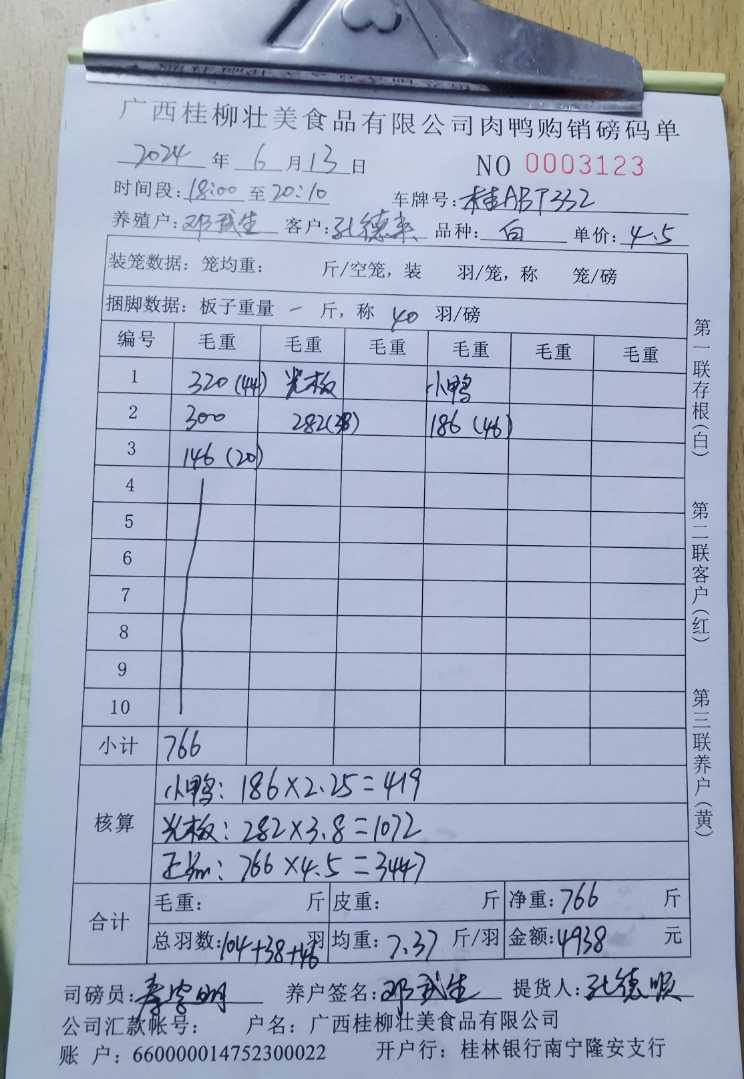 广西桂柳壮美食品有限公司肉鸭购销磅码单
2024 年 6 月 13 日 NO 0003123
时间段: 18:00 至 20:10 车牌号: 桂AB7332
养殖户: 邓武生 客户: 孔德来 品种: 白 单价: 4.5
装笼数据: 笼均重: 斤/空笼, 装 羽/笼, 称 笼/磅
捆脚数据: 板子重量 一 斤, 称 40 羽/磅
编号 毛重 毛重 毛重 毛重 毛重 毛重
1 320(44) 光板 小鸭
2 300 282(38) 186 (46)
3 146 (20)
4
5
6
7
8
9
10
小计 766
核算
小鸭: 186×2.25=419
光板: 282×3.8=1072
正如: 766×4.5=3447
合计
毛重: 斤 皮重: 斤 净重: 766 斤
总羽数: 104+38+46 羽 均重: 7.37 斤/羽 金额: 4938 元
司磅员: 养户签名: 邓武生 提货人: 孔德顺
公司汇款帐号: 户名: 广西桂柳壮美食品有限公司
账 户: 660000014752300022 开户行: 桂林银行南宁隆安支行
第一联存根(白)
第二联客户(红)
第三联养户(黄)